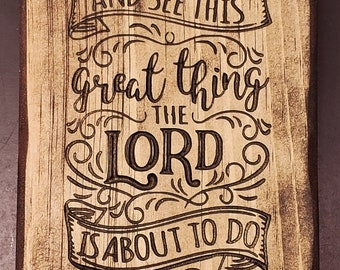 AND SEE THIS
great thing
THE
LORD
IS ABOUT TO DO